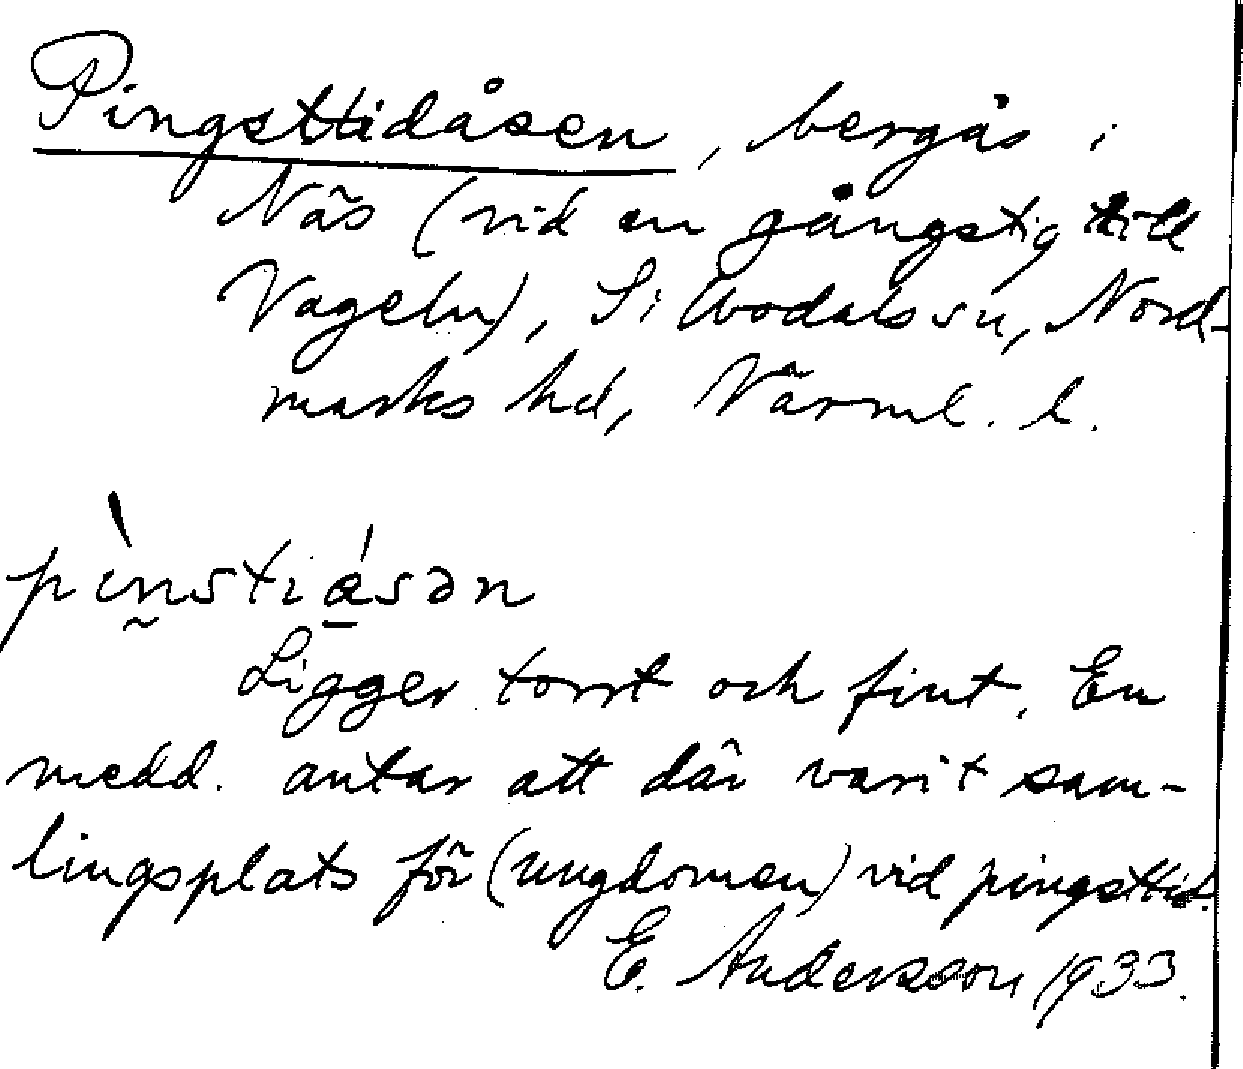 Pingsttidåsen, bergås i
Näs (vid en gångstig till
Vageln), Silbodals sn, Nord-
marks hd, Värml. l.
pìn̰stiá̱sən
Ligger torrt och fint. En
medd. antar att där varit sam-
lingsplats för (ungdomen) vid pingsttid.
E. Andersson 1933.